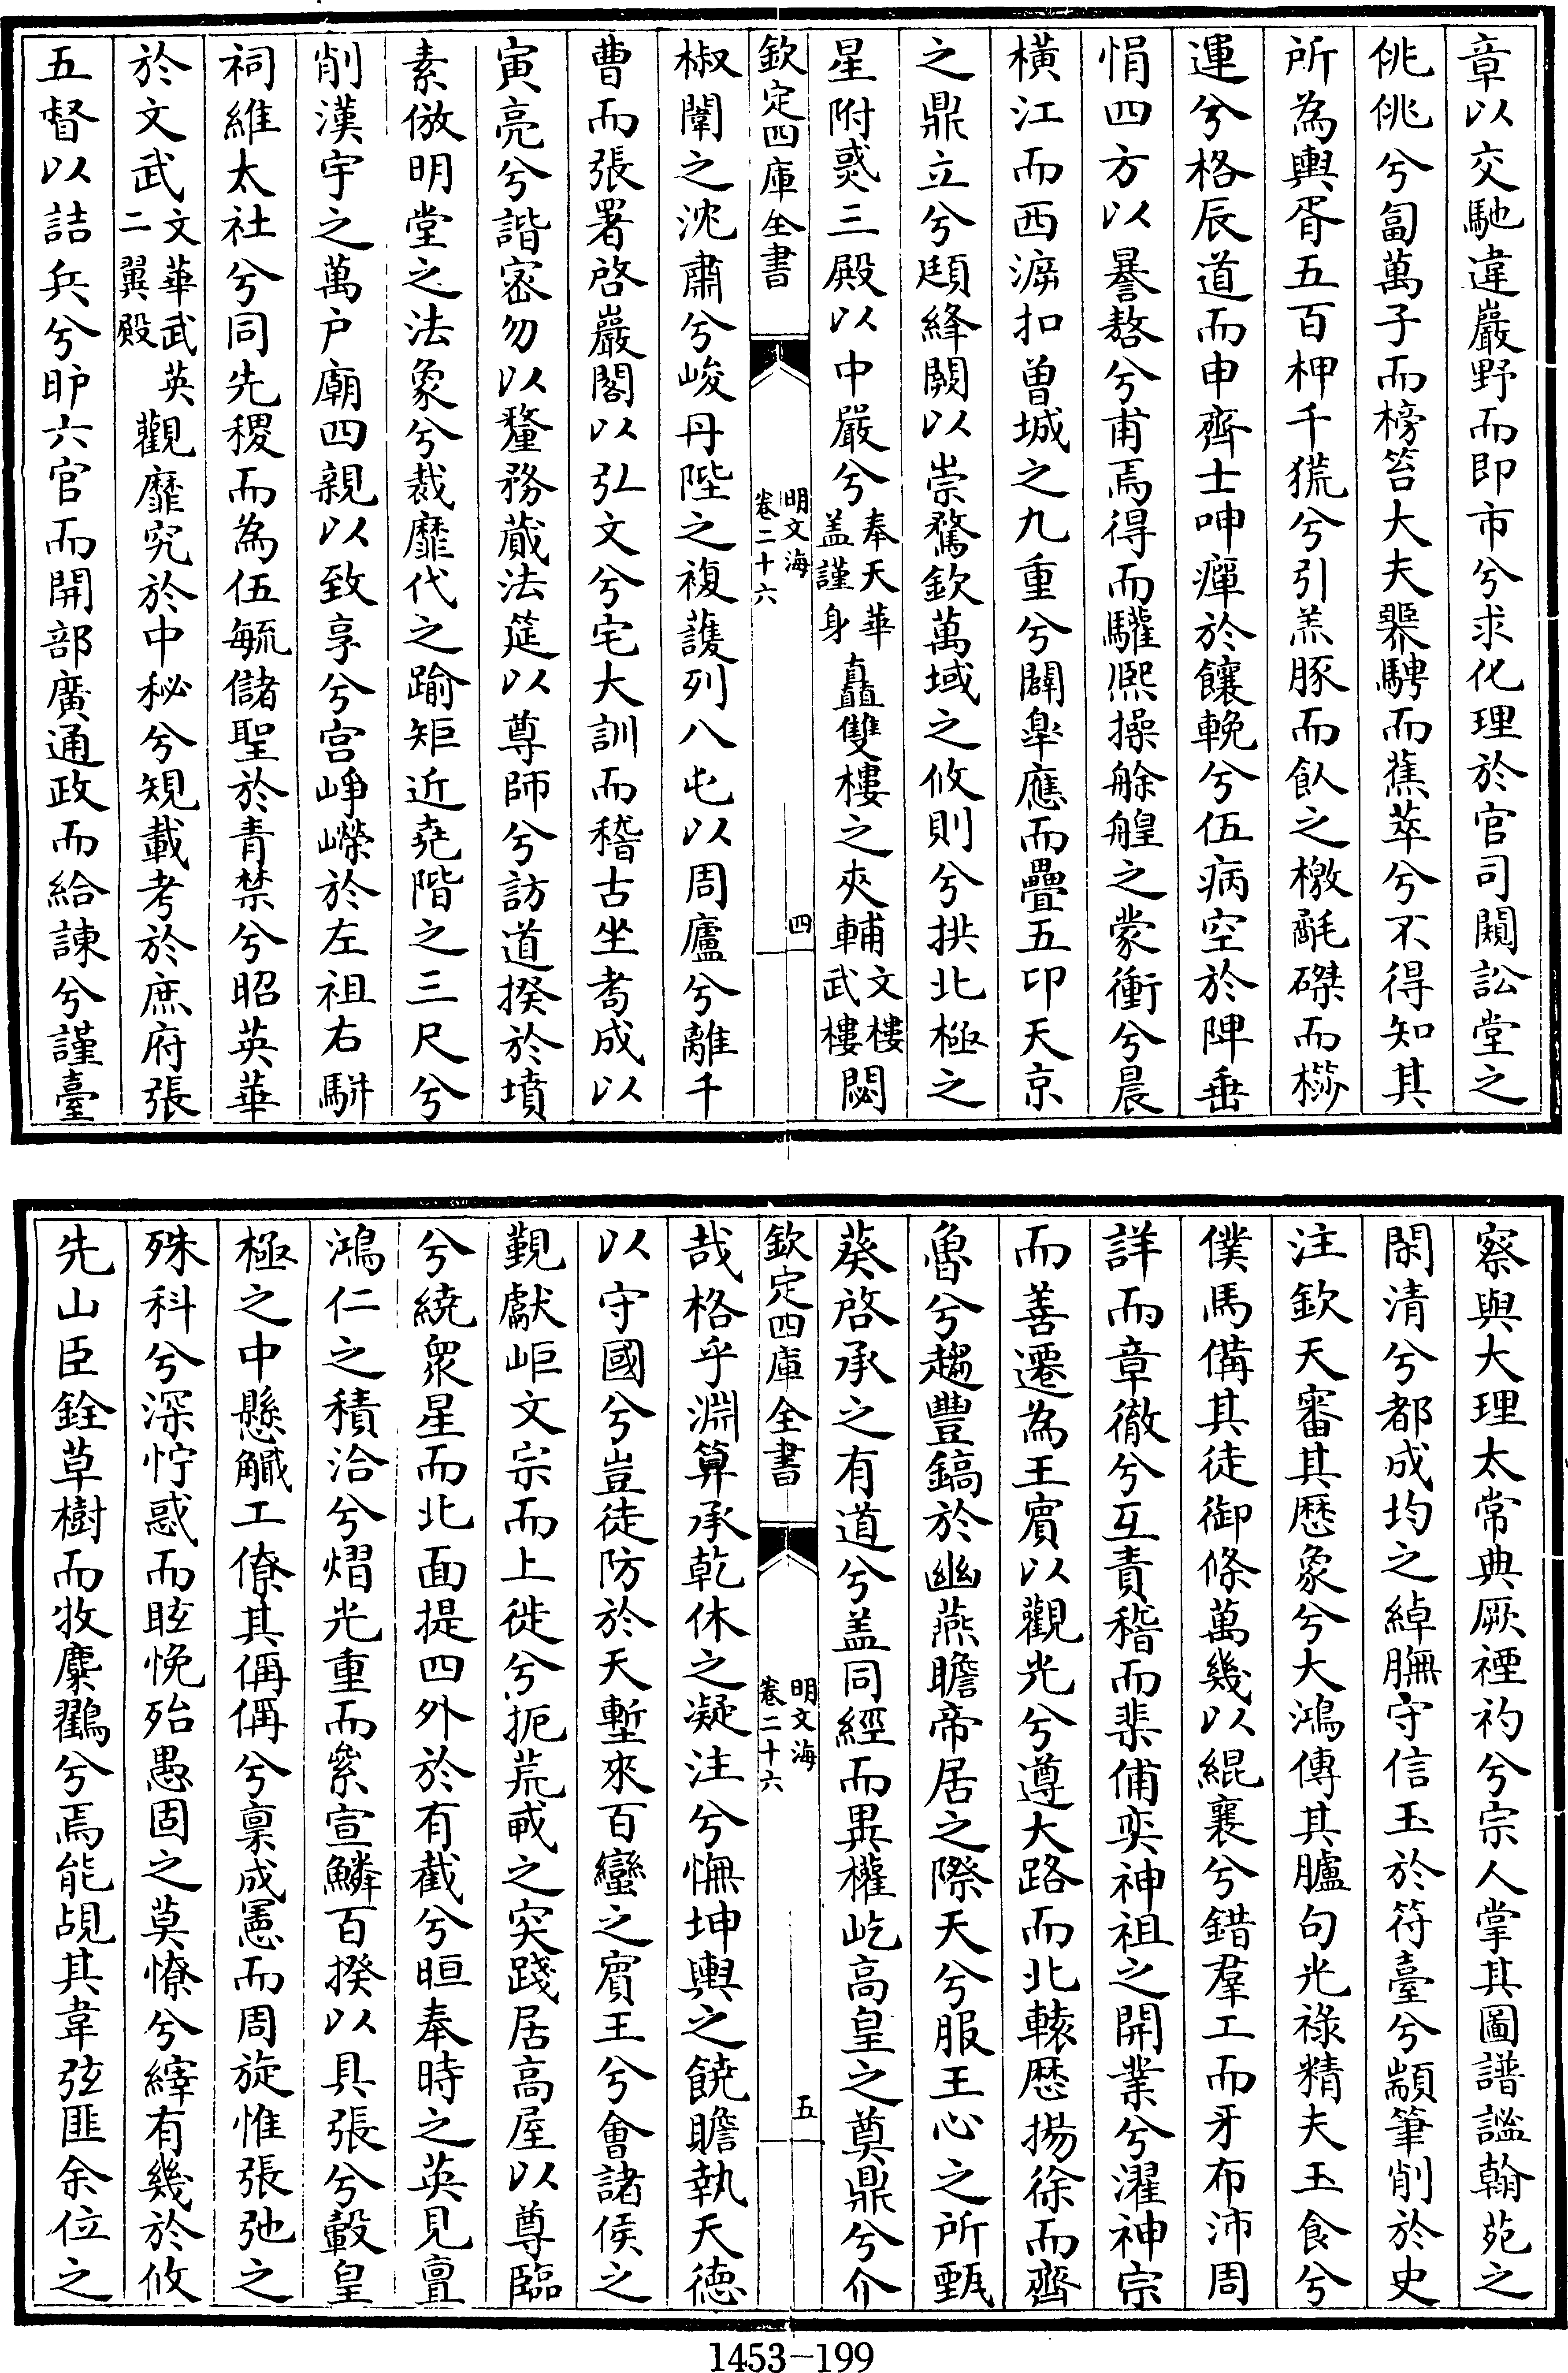 章以交馳違巖野而即市兮求化理於官司闃訟堂之
佻佻兮匐萬子而榜笞大夫鷃騁而蕉萃兮不得知其
所為輿胥五百柙千㹹兮引羔豚而飲之檄㲠磔而㭮
運兮格辰道而申齊士呻癉於饟輓兮伍病空於陴垂
悁四方以㬥敖兮甫焉得而驩熙操艅艎之蒙衝兮晨
橫江而西㴑扣曽城之九重兮闢臯應而疊五印天京
之鼎立兮頲絳闕以崇騖欽萬域之攸則兮拱北極之
星附惑三殿以中嚴兮奉天華蓋謹身矗雙樓之夾輔文樓武樓閟
欽定四庫全書
明文海
卷二十六
四
椒闈之沈肅兮峻丹陛之複護列八屯以周廬兮離千
曹而張署啓巖閣以弘文兮宅大訓而稽古坐耇成以
寅亮兮諧密勿以釐務蕆法筵以尊師兮訪道揆於墳
素倣明堂之法象兮裁靡代之踰矩近堯階之三尺兮
削漢宇之萬户廟四親以致享兮宫崢嶸於左祖右駢
祠維太社兮同先稷而為伍毓儲聖於青禁兮昭英華
於文武文華武英二翼殿觀靡究於中秘兮䂓載考於庶府張
五督以詰兵兮眎六官而開部廣通政而給諫兮謹臺
察與大理太常典厥禋礿兮宗人掌其圖譜謐翰苑之
閑清兮都成均之綽膴守信玉於符臺兮顓筆削於史
注欽天審其厯象兮大鴻傳其臚句光祿精夫玉食兮
僕馬備其徒御條萬幾以緄襄兮錯羣工而牙布沛周
詳而章徹兮互責稽而棐俌奕神祖之開業兮濯神宗
而善遷為王賓以觀光兮遵大路而北轅厯揚徐而齊
魯兮趨豐鎬於幽燕瞻帝居之際天兮服王心之所甄
葵啓承之有道兮蓋同經而異權屹高皇之奠鼎兮介
欽定四庫全書
明文海
卷二十六
五
哉格乎淵算承乾休之凝注兮憮坤輿之饒贍執天徳
以守國兮豈徒防於天塹來百蠻之賓王兮㑹諸侯之
覲獻岠文宗而上徙兮扼荒戒之突踐居高屋以尊臨
兮繞衆星而北面提四外於有截兮晅奉時之英見亶
鴻仁之積洽兮熠光重而絫宣鱗百揆以具張兮轂皇
極之中懸觿工僚其偁偁兮稟成憲而周旋惟張弛之
殊科兮深恑惑而眩悗殆愚固之莫憭兮繹有幾於攸
先山臣銓草樹而牧麋鸐兮焉能覘其韋弦匪余位之
1453-199